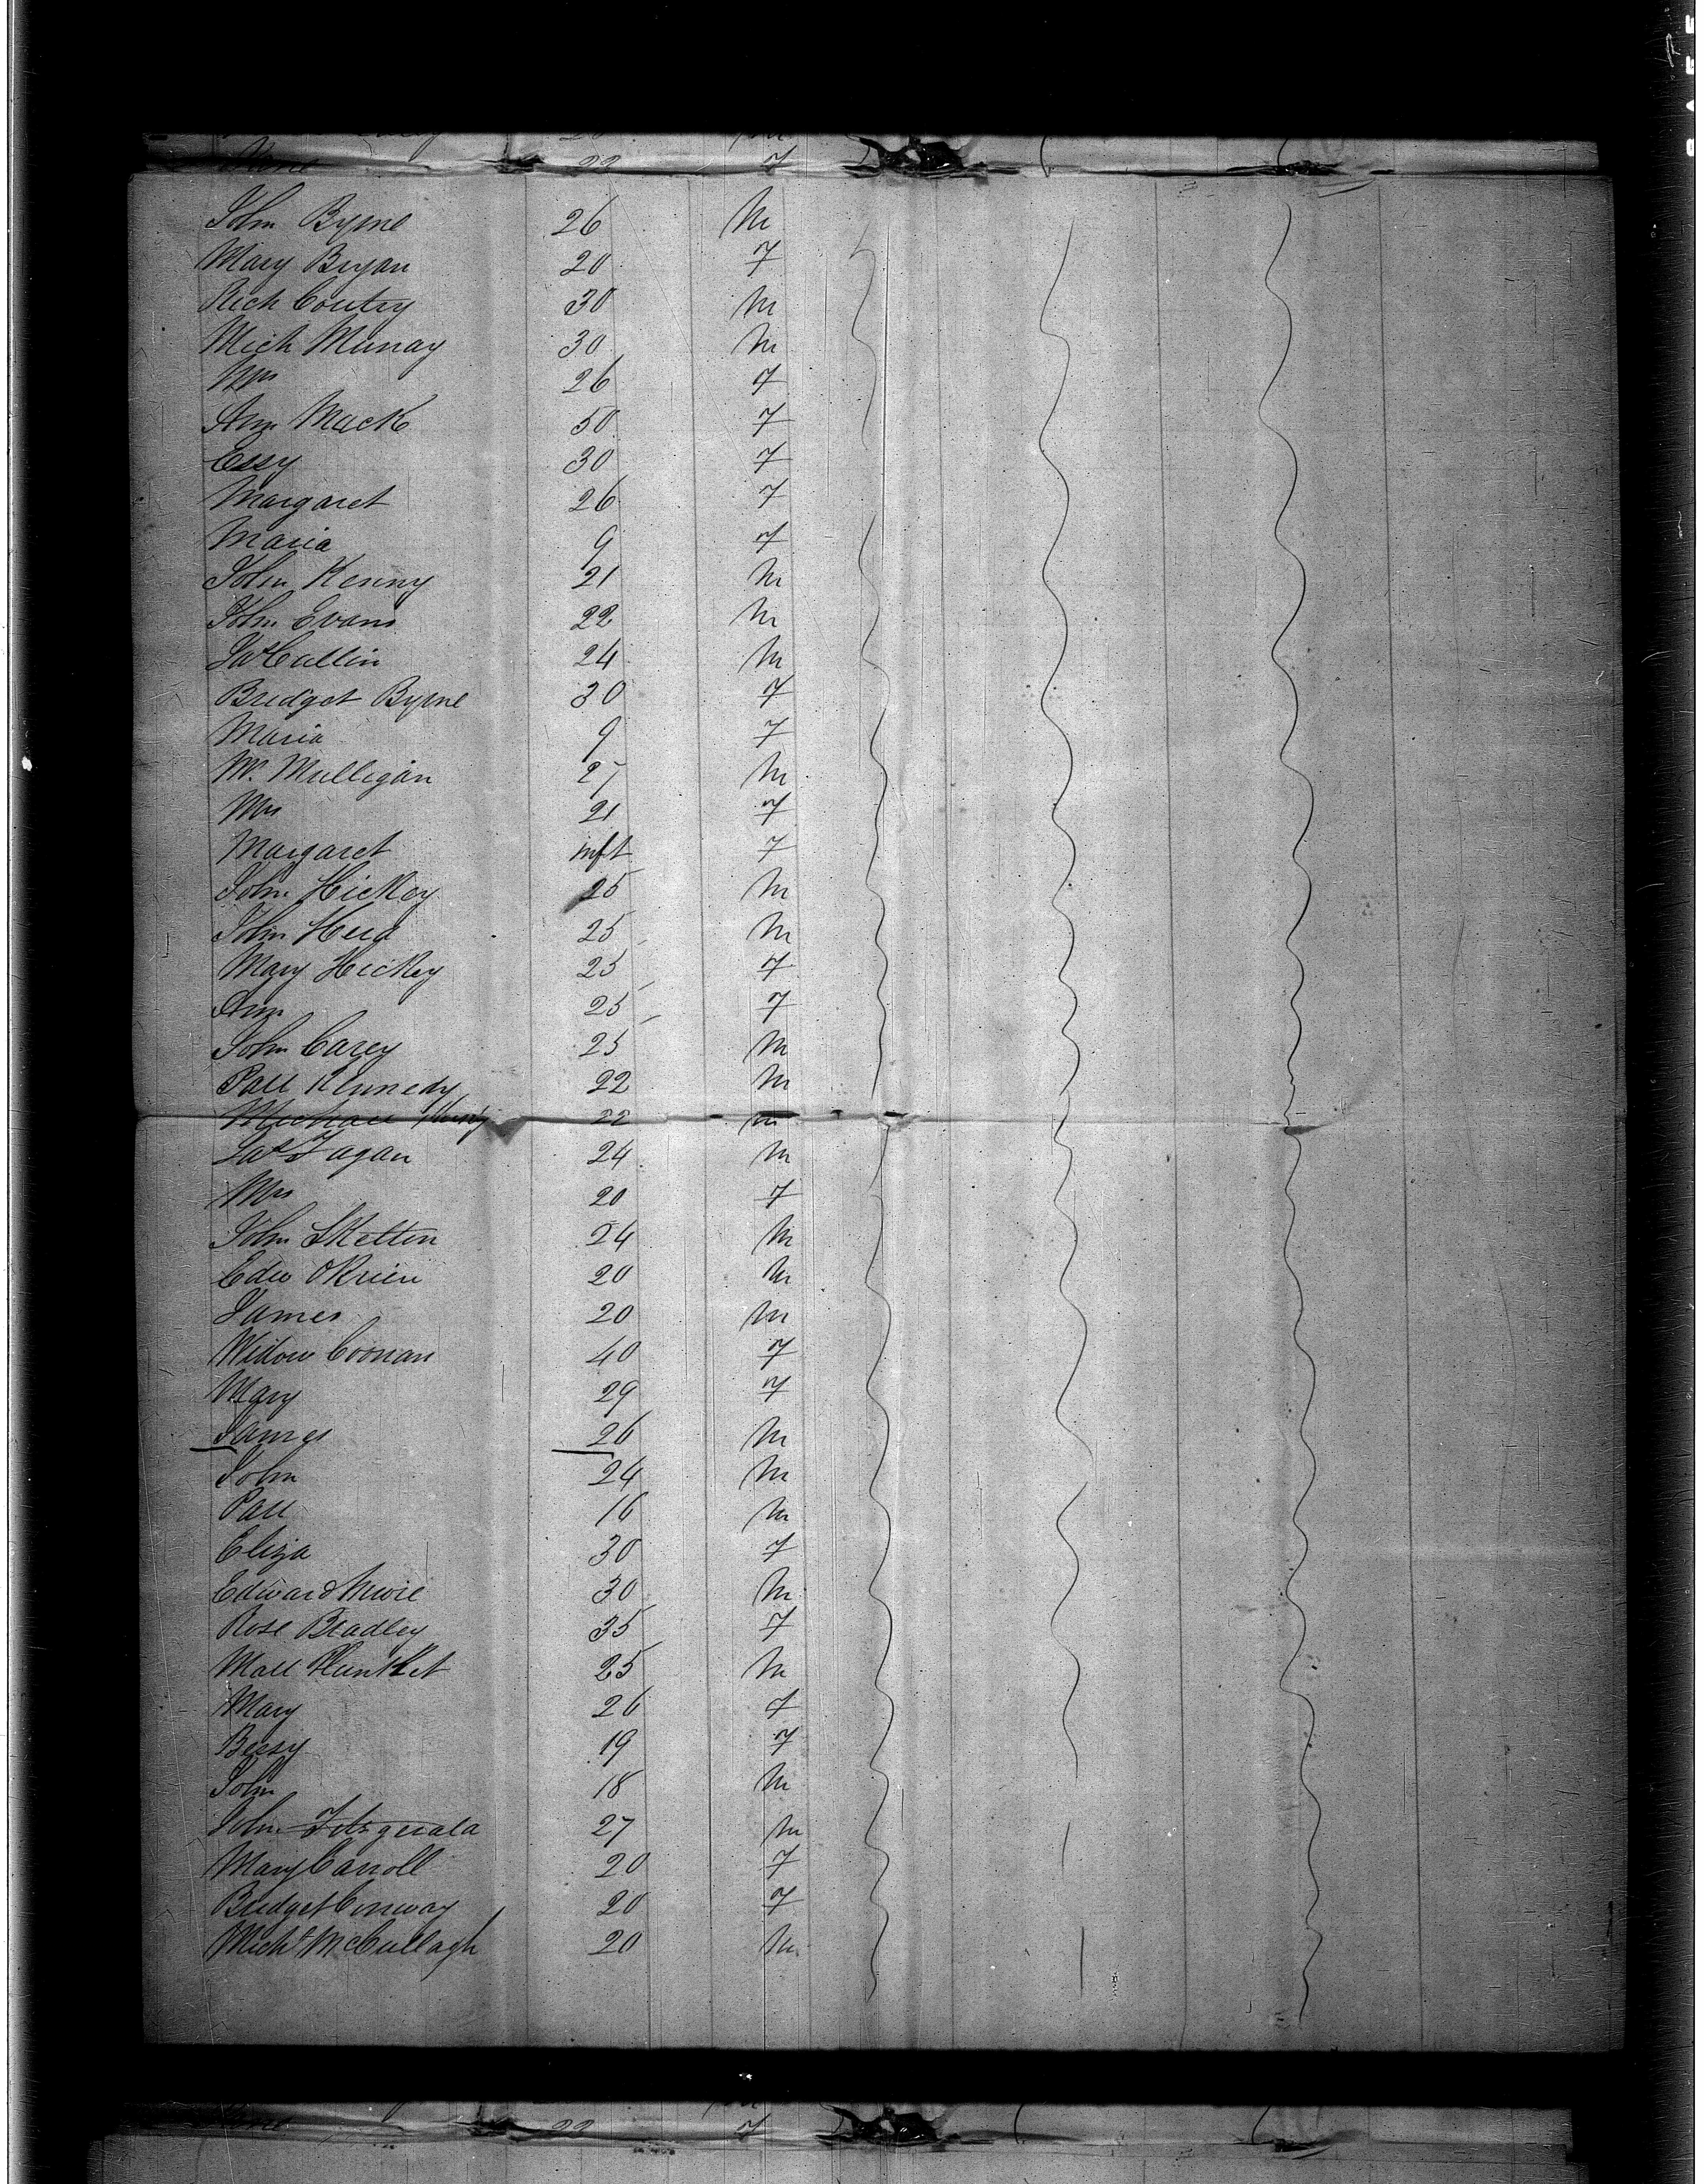 22 7
John Byrne 26 M
Mary Bryan 20 7
Rich Coutry 30 M
Mich Murray 30 M
Mrs 26 7
Ann Mack 50 7
Essy 30 7
Margaret 26 7
Maria 9 7
John Kenny 21 M
John Evans 22 M
Jas Cullin 24 M
Bridget Byrne 30 7
Maria 9 7
Wm Mulligan 27 M
Mrs 21 7
Margaret inft 7
John Hickey 25 M
John Herd 25 M
Mary Hickey 25 7
Ann 25 7
John Carey 25 M
Patt Kennedy 22 M
Michael 22 M
Pat Fagan 24 M
Mrs 20 7
John Skelton 24 M
Edw OBrien 20 M
James 20 M
Widow Coonan 40 7
Mary 29 7
James 26 M
John 24 M
Patt 16 M
Eliza 30 7
Edward 30 M
Rose Bradley 35 7
Matt Plunket 25 M
Mary 26 7
Bessy 19 7
John 18 M
John Fitzgerald 27 M
Mary Carroll 20 7
Bridget Conway 20 7
Michl McCullagh 20 M
22 7